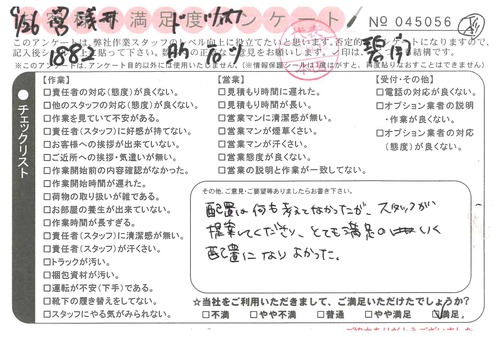 お客様満足度アンケート
No 045056
このアンケートは、弊社作業スタッフのレベル向上に役立てたいと思います。
チェックリスト
【作業】
□責任者の対応(態度)が良くない。
□他のスタッフの対応(態度)が良くない。
□作業を見ていて不安がある。
□責任者(スタッフ)に好感が持てない。
□お客様への挨拶が出来ていない。
□ご近所への挨拶・気遣いが無い。
□作業開始前の内容確認がなかった。
□作業開始時間が遅れた。
□荷物の取り扱いが雑である。
□お部屋の養生が出来ていない。
□作業時間が長すぎる。
□責任者(スタッフ)に清潔感が無い。
□責任者(スタッフ)が汗くさい。
□トラックが汚い。
□梱包資材が汚い。
□運転が不安(下手)である。
□靴下の履き替えをしてない。
□スタッフにやる気がみられない。
【営業】
□見積もり時間に遅れた。
□見積もり時間が長い。
□営業マンに清潔感が無い。
□営業マンが煙草くさい。
□営業マンが汗くさい。
□営業態度が良くない。
□営業の説明と作業が一致してない。
【受付・その他】
□電話の対応が良くない。
□オプション業者の説明
・作業が良くない。
□オプション業者の対応
(態度)が良くない。
その他、ご意見・ご要望等ありましたらお書き下さい。
配置は何も考えてなかったが、スタッフが
提案してくださり、とても満足の いく
配置になりよかった。
☆当社をご利用いただきまして、ご満足いただけたでしょうか?
□不満 □やや不満 □普通 □やや満足 □満足。